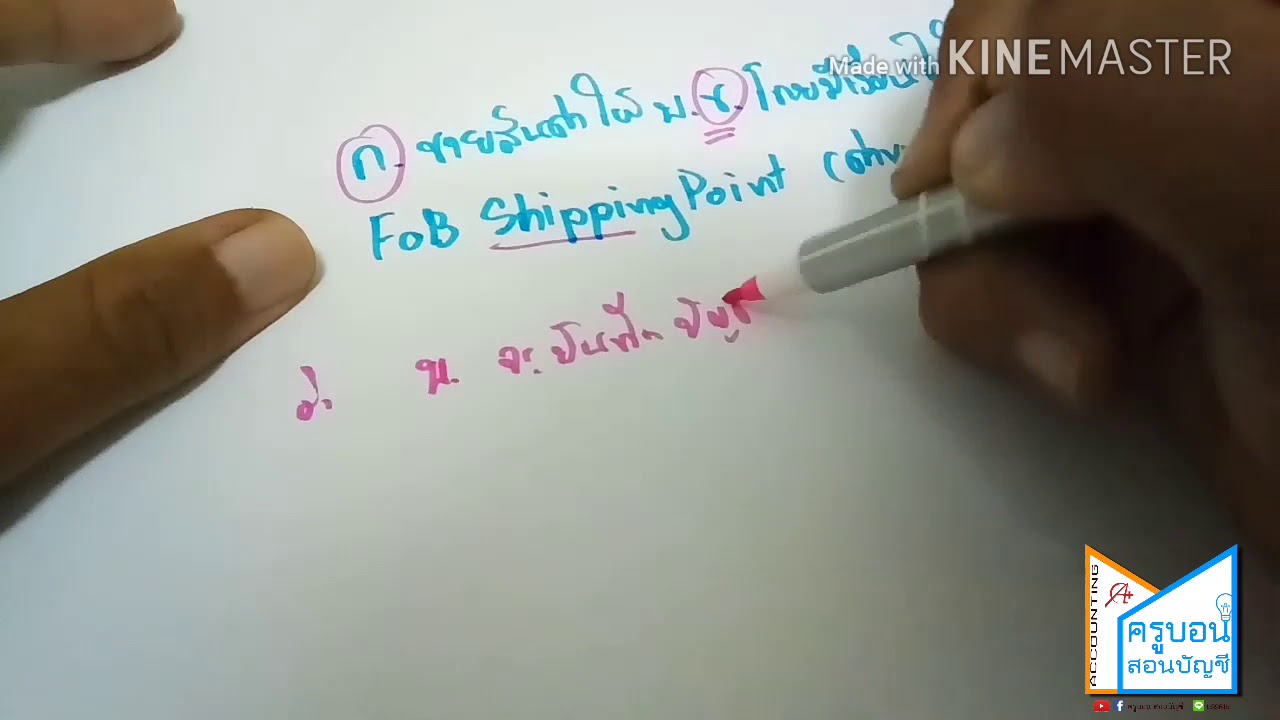 Made with KINEMASTER
ก. ขายสินค้าให้ บ. ข. โดยมีเงื่อนไข
FoB Shipping Point (ค่าข
ข. จะบันทึก บัญชี
ACCOUNTING A+
ครูบอน
สอนบัญชี